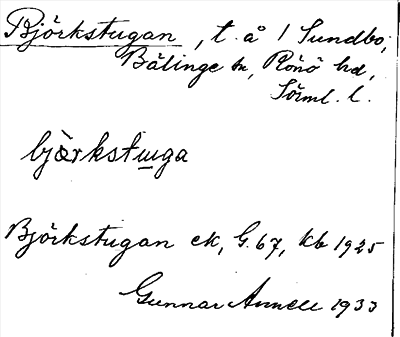 Björkstugan, t. å 1 Sundbo;
Bälinge sn, Rönö hd,
Sörml. l.
bjö̀rkstuga
Björkstugan ek, G. 67, kb 1925
Gunnar Annell 1933